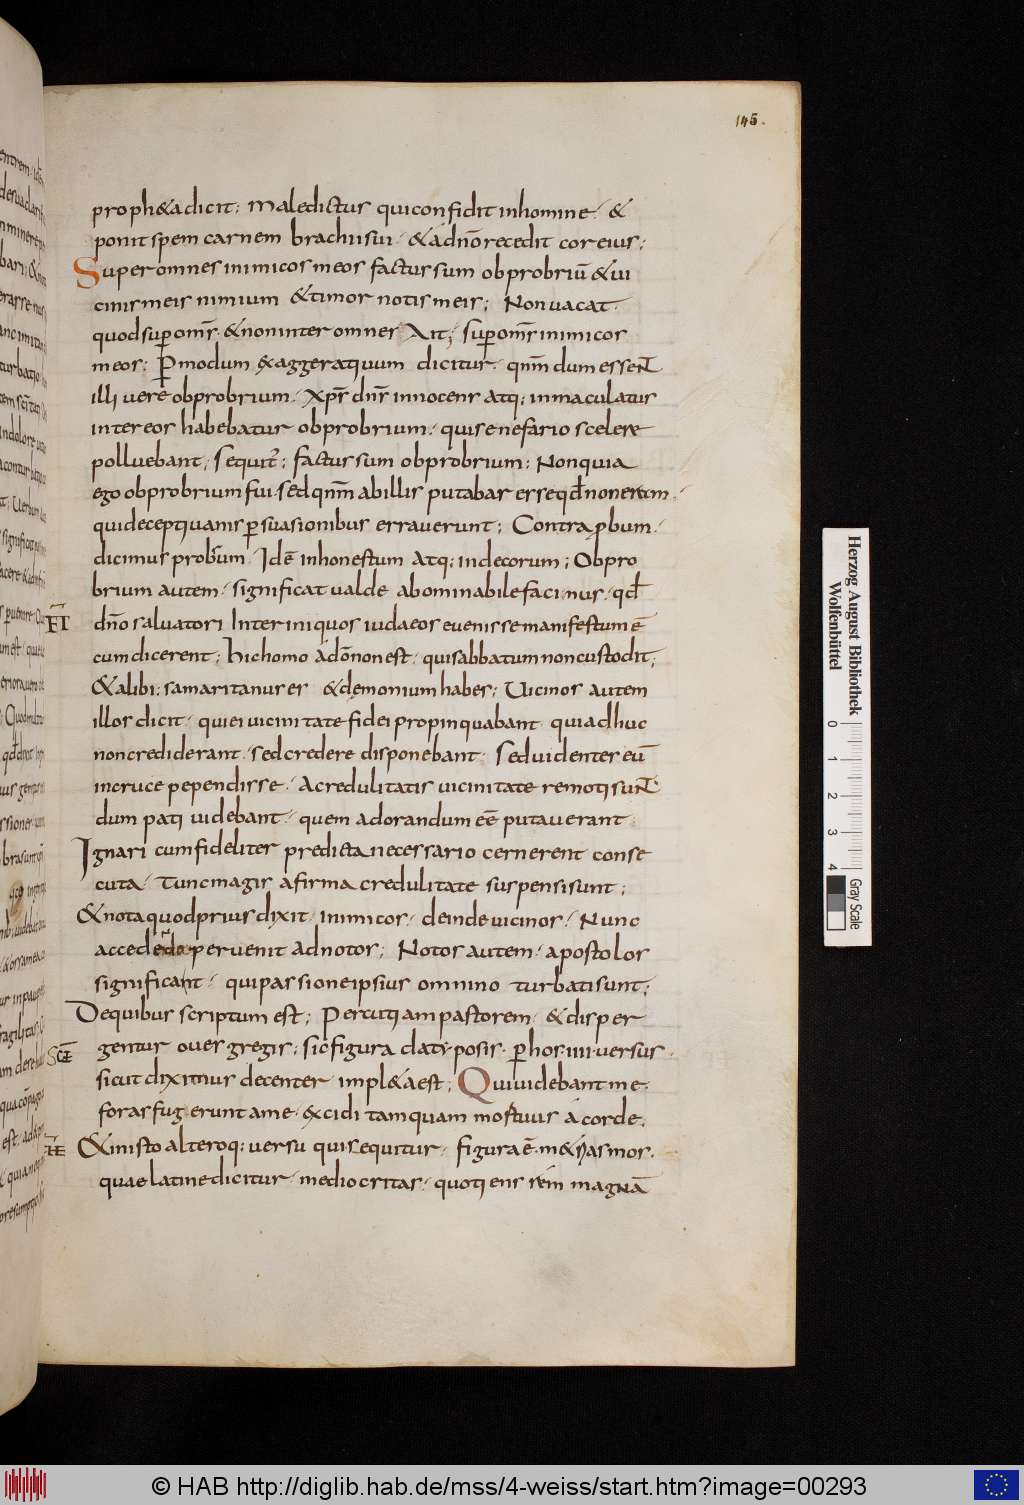 145.
proph&a dicit; Maledictus qui confidit in homine · &
ponit spem carnem brachii sui · & a dn̄o recedit cor eius;
Super omnes inimicos meos factus sum obprobriū & ui
cinis meis nimium & timor notis meis; Non uacat ·
quod suꝑ om̄s · & non inter omnes Ait; suꝑ om̄s inimicos
meos; P modum exaggeratiuum dicitur · qnm̄ dum essent
illi uere obprobrium · xp̄s dn̄s innocens atq; inmaculatus
inter eos habebatur obprobrium · qui se nefario scelere
polluebant; sequit̄; factus sum obprobrium; Non quia
ego obprobrium fui · sed qnm̄ ab illis putabar esse qd̄ non eram ·
qui deceptiuanis ꝑsuasionibus errauerunt; Contra ꝓbum ·
dicimus probrum · Idē inhonestum atq; indecorum; Obpro
brium autem · significat ualde abominabile facinus · qd̄
dn̄o saluatori Inter iniquos iudaeos euenisse manifestum ē
cum dicerent; hic homo a dō non est · qui sabbatum non custodit;
& alibi; samaritanus es & demonium habes; Uicinos autem
illos dicit · qui ei uicinitate fidei propinquabant · qui adhuc
non crediderant · sed credere disponebant · Sed uidentes eū
in cruce pependisse · A credulitatis uicinitate remoti sunt
dum pati uidebant · quem adorandum eē putauerant
Ignari cum fideliter predicta necessario cernerent conse
cuta · Tunc magis a firma credulitate suspensi sunt;
& nota quod prius dixit · inimicos · deinde uicinos · Nunc
accedēdo peruenit ad notos; Notos autem · apostolos
significant · qui passione ipsius omnino turbati sunt;
De quibus scriptum est; Percutiam pastorem · & disper
gentur oues gregis; sic figura
ꝑ hos · IIII · uersus ·
sicut diximus decenter impl&a est; Qui uidebant me ·
foras fugerunt a me · excidi tamquam mortuus a corde ·
& in isto alteroq; uersu qui sequitur · figura ē
quae latine dicitur · mediocritas · quotiens rem magnā
Herzog August Bibliothek
Wolfenbüttel
0 1 2 3 4
Gray Scale
© HAB http://diglib.hab.de/mss/4-weiss/start.htm?image=00293